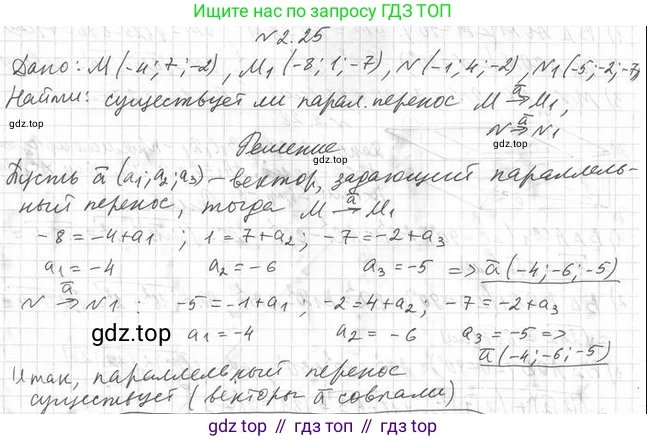 Ищите нас по запросу ГДЗ ТОП
№2.25
Дано: M(-4; 7; -2), M1(-8; 1; -7), N(-1; 4; -2), N1(-5; -2; -7)
Найти: существует ли парал. перенос M →ā M1,
gdz.top
N →ā N1
Решение
gdz.top
Пусть ā (a1; a2; a3) – вектор, задающий параллель-
ный перенос, тогда M →ā M1
-8 = -4 + a1 ; 1 = 7 + a2 ; -7 = -2 + a3
a1 = -4 a2 = -6 a3 = -5 => ā(-4; -6; -5)
N →ā N1 : -5 = -1 + a1 ; -2 = 4 + a2 ; -7 = -2 + a3
gdz.top
a1 = -4 a2 = -6 a3 = -5 =>
gdz.top
ā(-4; -6; -5)
Итак, параллельный перенос
существует (векторы ā совпали)
Больше решений на: gdz.top // gdz.top // gdz.top